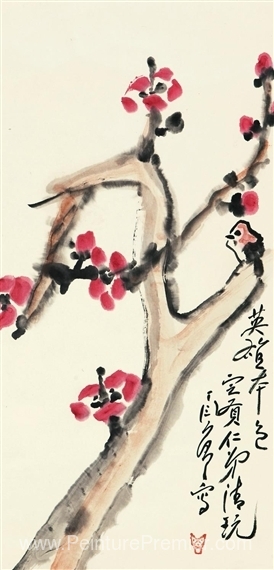 英雄本色
定頃仁弟清玩
丁衍庸寫
www.PeinturePremier.com